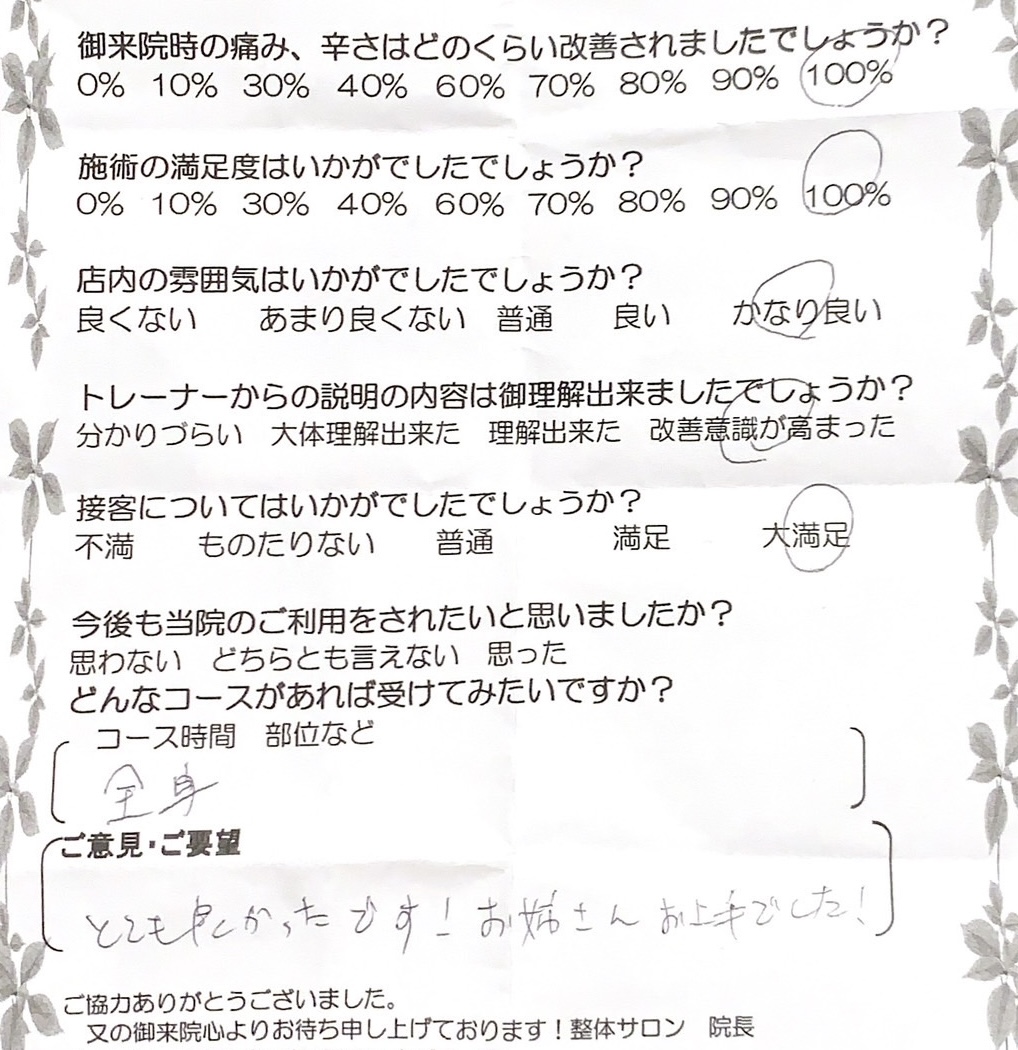 御来院時の痛み、辛さはどのくらい改善されましたでしょうか？
0% 10% 30% 40% 60% 70% 80% 90% 100%
施術の満足度はいかがでしたでしょうか？
0% 10% 30% 40% 60% 70% 80% 90% 100%
店内の雰囲気はいかがでしたでしょうか？
良くない あまり良くない 普通 良い かなり良い
トレーナーからの説明の内容は御理解出来ましたでしょうか？
分かりづらい 大体理解出来た 理解出来た 改善意識が高まった
接客についてはいかがでしたでしょうか？
不満 ものたりない 普通 満足 大満足
今後も当院のご利用をされたいと思いましたか？
思わない どちらとも言えない 思った
どんなコースがあれば受けてみたいですか？
コース時間 部位など
全身
ご意見・ご要望
とても良かったです！お姉さんお上手でした！
ご協力ありがとうございました。
又の御来院心よりお待ち申し上げております！整体サロン 院長